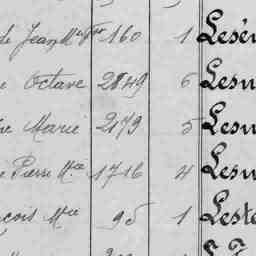 de Jean Mie Fçs 160 1 Lesé
e Octave 2849 6 Lesu
re Marie 2179 5 Lesu
e Pierre Mie 1716 4 Lesu
çois Mie 95 1 Leste